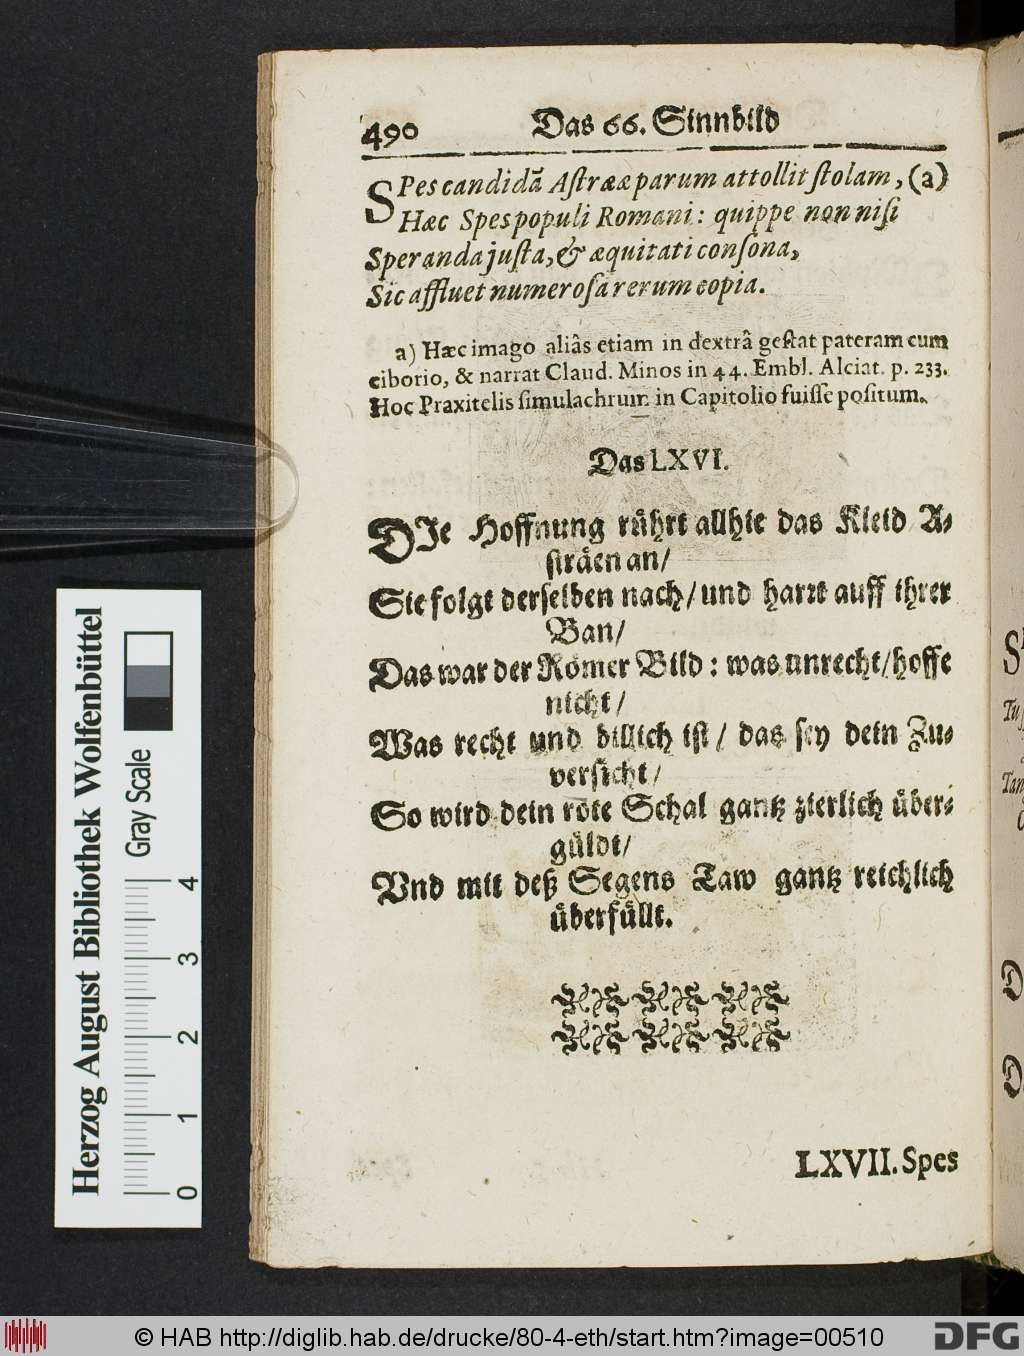 490 Das 66. Sinnbild
SPes candidā Aſtrææ parum attollit ſtolam, (a)
Hæc Spes populi Romani: quippe non niſi
Speranda juſta, & æquitati conſona,
Sic affluet numeroſa rerum copia.
a) Hæc imago aliâs etiam in dextrâ geſtat pateram cum
ciborio, & narrat Claud. Minos in 44. Embl. Alciat. p. 233.
Hoc Praxitelis ſimulachrum in Capitolio fuiſſe poſitum.
Das LXVI.
DIe Hoffnung rührt allhie das Kleid A-
ſträen an/
Sie folgt derſelben nach/ und harrt auff ihrer
Ban/
Das war der Römer Bild: was unrecht/ hoffe
nicht/
Was recht und billich iſt/ das ſey dein Zu-
verſicht/
So wird dein rote Schal gantz zierlich über-
güldt/
Vnd mit deß Segens Taw gantz reichlich
überfüllt.
LXVII. Spes
Herzog August Bibliothek Wolfenbüttel
Gray Scale
0 1 2 3 4
© HAB http://diglib.hab.de/drucke/80-4-eth/start.htm?image=00510
DFG